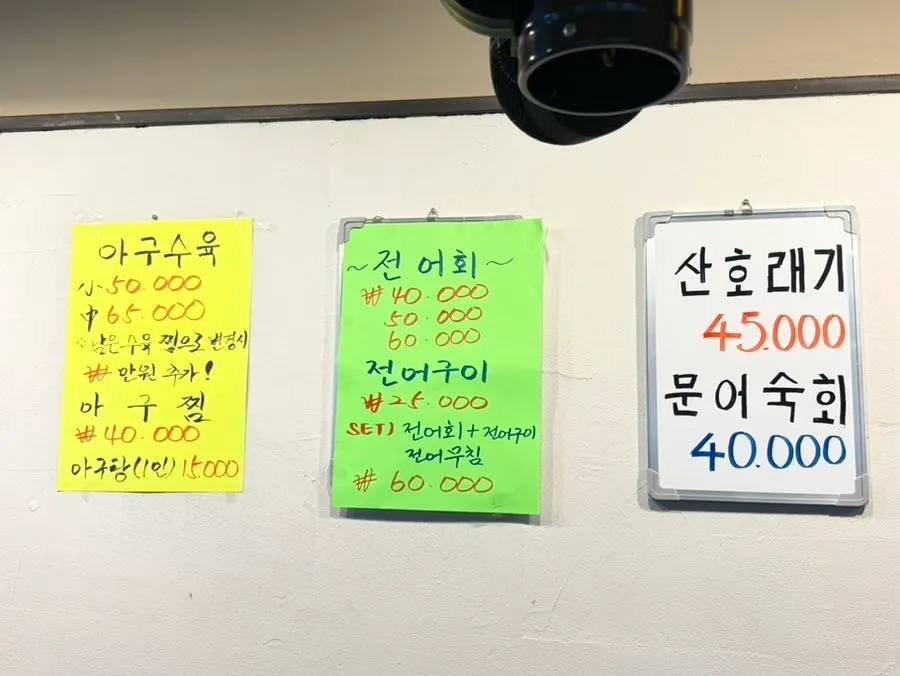 아구수육
小 50.000
中 65.000
※남은수육 찜으로 변경시
₩ 만원 추가!
아구찜
₩ 40.000
아구탕(1인) 15.000
~전어회~
₩ 40.000
50.000
60.000
전어구이
₩ 25.000
SET) 전어회+전어구이
전어무침
₩ 60.000
산호래기
45.000
문어숙회
40.000